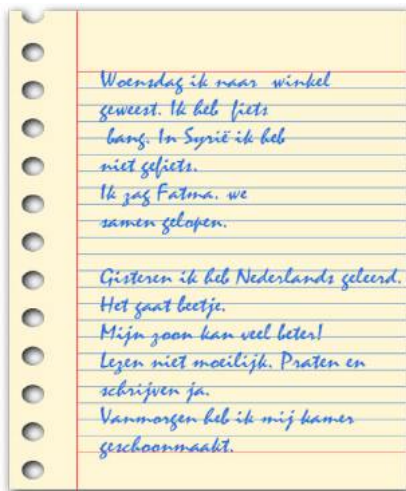 Woensdag ik naar winkel
geweest. Ik heb fiets
bang. In Syrië ik heb
niet gefiets.
Ik zag Fatma. we
samen gelopen.
Gisteren ik heb Nederlands geleerd.
Het gaat beetje.
Mijn zoon kan veel beter!
Lezen niet moeilijk. Praten en
schrijven ja.
Vanmorgen heb ik mij kamer
geschoonmaakt.